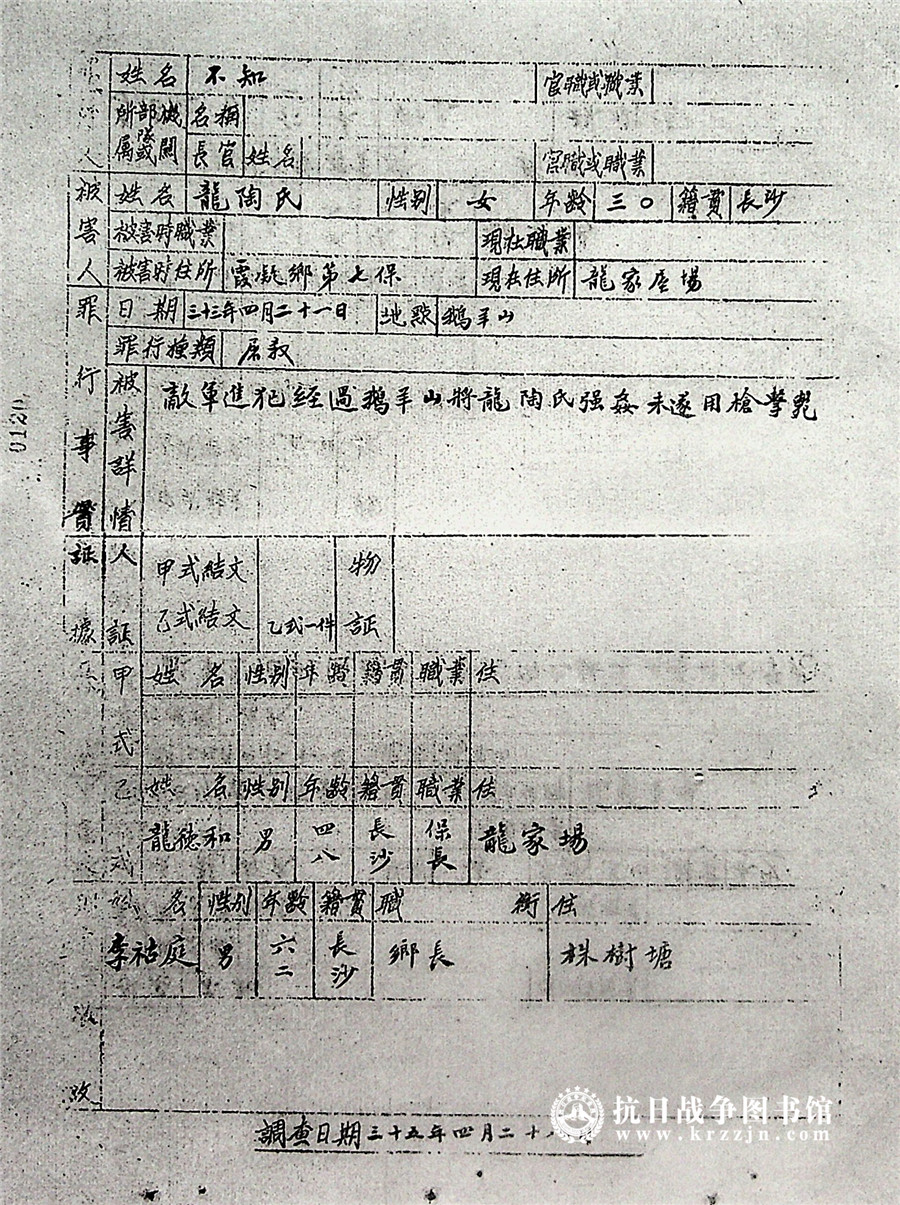 姓名 不知 官職或職業
所屬部隊或機關 名稱
人 長官 姓名 官職或職業
被害人 姓名 龍陶氏 性别 女 年齡 三〇 籍貫 長沙
被害時職業 現在職業
被害時住所 霞凝鄉第七保 現在住所 龍家屋場
罪行事實 日期 三十三年四月二十一日 地點 鵝羊山
罪行種類 屠殺
被害詳情 敵軍進犯經過鵝羊山將龍陶氏强姦未遂用槍擊斃
0120
証據 人証 甲式結文 物証
乙式結文 乙式一件
甲式 姓名 性别 年齡 籍貫 職業 住
乙式 姓名 性别 年齡 籍貫 職業 住
龍德和 男 四八 長沙 保長 龍家場
名 性别 年齡 籍貫 職銜 住
李祜庭 男 六二 長沙 鄉長 株樹塘
調查日期三十五年四月二十
抗日战争图书馆
www.krzzjn.com